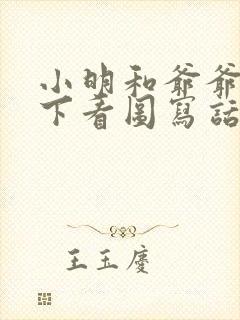 小明和爺爺
下着圖寫話
王玉慶